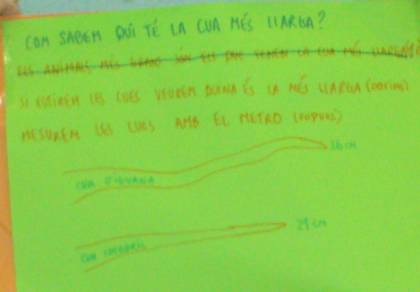 COM SABEM QUI TÉ LA CUA MÉS LLARGA?
ELS ANIMALS MÉS GRANS SÓN ELS QUE TENEN LA CUA MÉS LLARGA
SI ESTIREM LES CUES VEUREM QUINA ÉS LA MÉS LLARGA
MESUREM LES CUES AMB EL METRO
36 CM
CUA D'IGUANA
29 CM
CUA